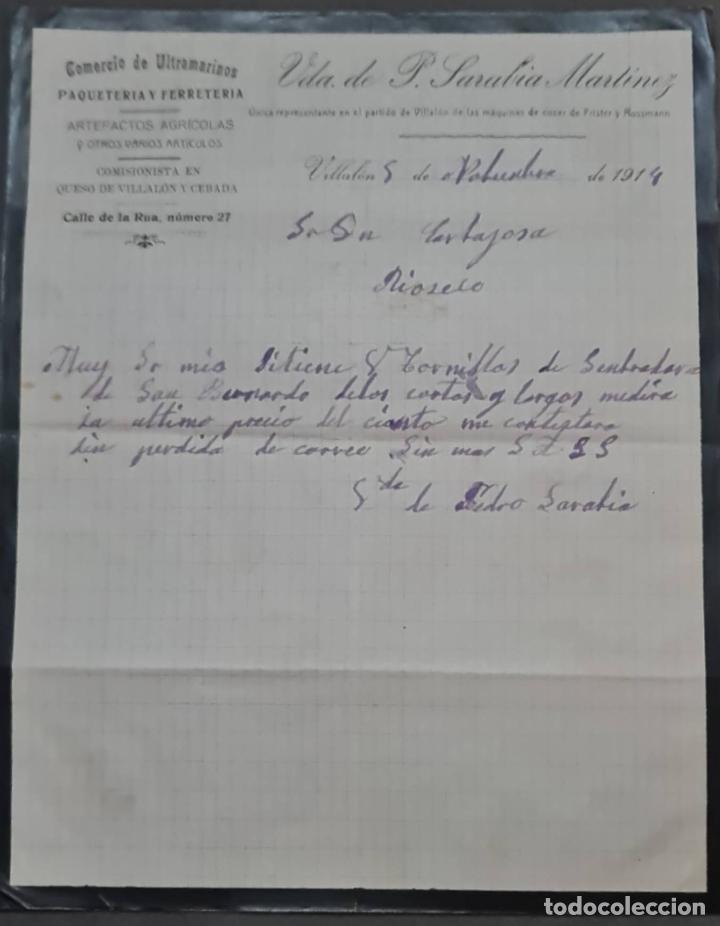 Comercio de Ultramarinos
PAQUETERIA Y FERRETERIA
ARTEFACTOS AGRÍCOLAS
Y OTROS VARIOS ARTÍCULOS
COMISIONISTA EN
QUESO DE VILLALÓN Y CEBADA
Calle de la Rua, número 27
Vda. de P. Sarabia Martínez
Única representante en el partido de Villalón de las máquinas de coser de Frister y Rossmann
Villalón 5 de de 1914
Sr Dn Carbajosa
Rioseco
Muy Sr mio Sitiene Tornillos de Senbradora
de San Bernardo delos cortos y largos medira
su ultimo precio del ciento me contestara
sin perdida de correo Sin mas S S S
de Pedro Sarabia
todocoleccion
todocoleccion.net